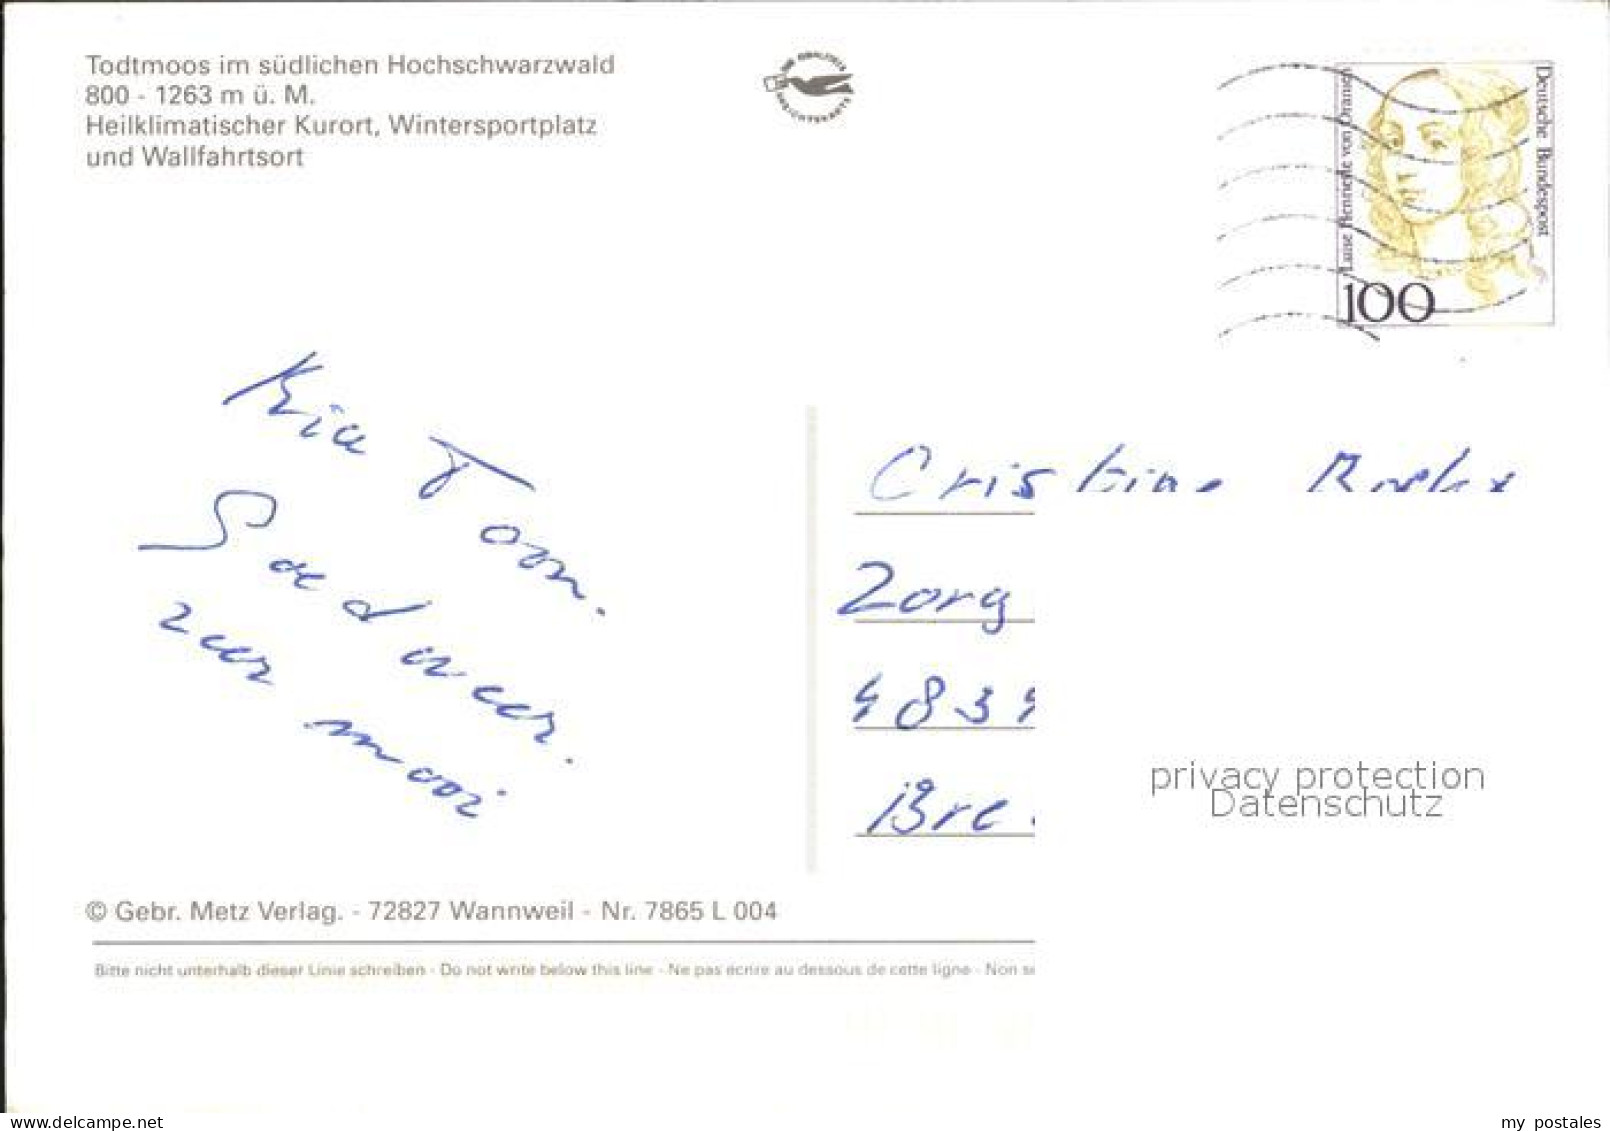 Todtmoos im südlichen Hochschwarzwald
800 - 1263 m ü. M.
Heilklimatischer Kurort, Wintersportplatz
und Wallfahrtsort
Deutsche Bundespost
Luise Henriette von Oranien
100
Toon.
Goed weer.
zeer mooi
Cristine
Zorg
4834
Bre
privacy protection
Datenschutz
© Gebr. Metz Verlag. - 72827 Wannweil - Nr. 7865 L 004
Bitte nicht unterhalb dieser Linie schreiben - Do not write below this line - Ne pas écrire au dessous de cette ligne - Non
delcampe.net
my_postales